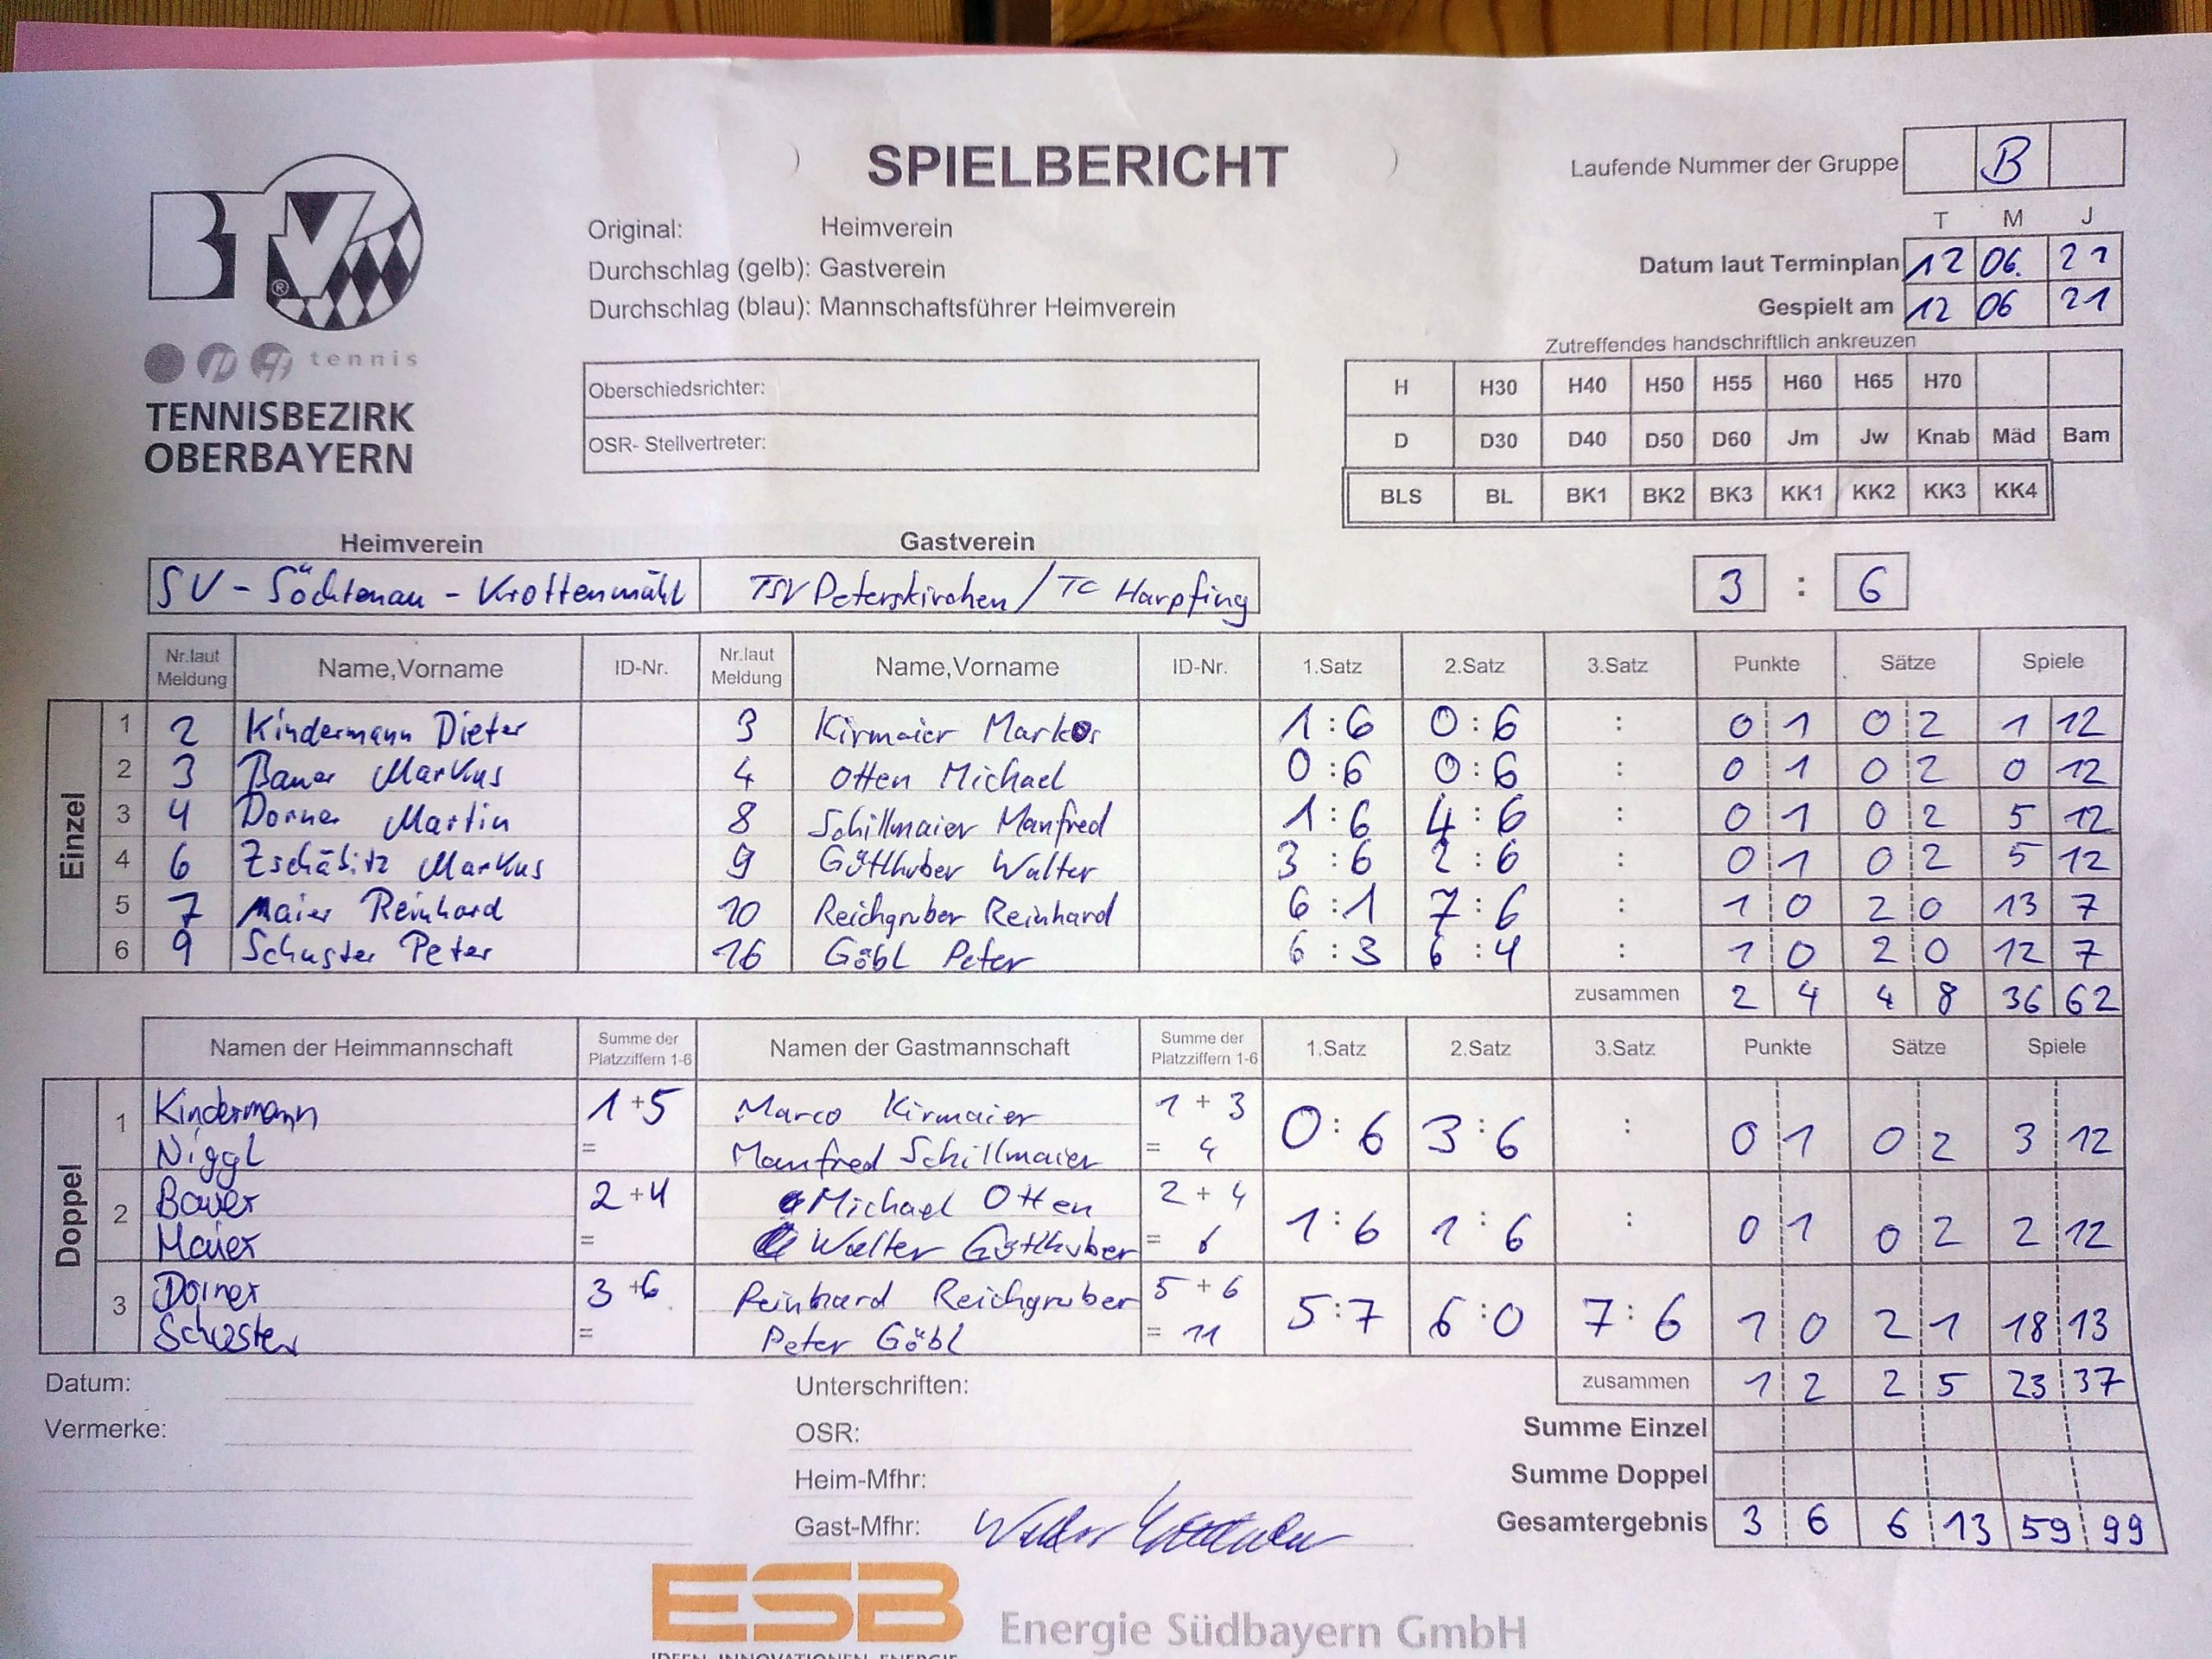 SPIELBERICHT
Laufende Nummer der Gruppe B
T M J
Original: Heimverein
Durchschlag (gelb): Gastverein
Durchschlag (blau): Mannschaftsführer Heimverein
Datum laut Terminplan 12 06. 21
Gespielt am 12 06 21
Zutreffendes handschriftlich ankreuzen
BTV ®
tennis
TENNISBEZIRK
OBERBAYERN
Oberschiedsrichter:
OSR- Stellvertreter:
H H30 H40 H50 H55 H60 H65 H70
D D30 D40 D50 D60 Jm Jw Knab Mäd Bam
BLS BL BK1 BK2 BK3 KK1 KK2 KK3 KK4
Heimverein Gastverein
SV - Söchtenau - Krottenmühl TSV Peterskirchen / TC Harpfing 3 : 6
Nr.laut Meldung Name,Vorname ID-Nr. Nr.laut Meldung Name,Vorname ID-Nr. 1.Satz 2.Satz 3.Satz Punkte Sätze Spiele
Einzel
1 2 Kindermann Dieter 3 Kirmaier Markos 1:6 0:6 : 0 1 0 2 1 12
2 3 Bauer Markus 4 Otten Michael 0:6 0:6 : 0 1 0 2 0 12
3 4 Dorner Martin 8 Schillmaier Manfred 1:6 4:6 : 0 1 0 2 5 12
4 6 Zschäbitz Markus 9 Göttlhuber Walter 3:6 2:6 : 0 1 0 2 5 12
5 7 Maier Reinhard 10 Reichgruber Reinhard 6:1 7:6 : 1 0 2 0 13 7
6 9 Schuster Peter 16 Göbl Peter 6:3 6:4 : 1 0 2 0 12 7
zusammen 2 4 4 8 36 62
Namen der Heimmannschaft Summe der Platzziffern 1-6 Namen der Gastmannschaft Summe der Platzziffern 1-6 1.Satz 2.Satz 3.Satz Punkte Sätze Spiele
Doppel
1 Kindermann 1+5 Marco Kirmaier 1 + 3 0:6 3:6 : 0 1 0 2 3 12
Niggl = Manfred Schillmaier = 4
2 Bauer 2+4 Michael Otten 2 + 4 1:6 1:6 : 0 1 0 2 2 12
Maier = Walter Göttlhuber = 6
3 Dorner 3+6 Reinhard Reichgruber 5 + 6 5:7 6:0 7:6 1 0 2 1 18 13
Schuster = Peter Göbl = 11
Datum: Unterschriften: zusammen 1 2 2 5 23 37
Vermerke: OSR: Summe Einzel
Heim-Mfhr: Summe Doppel
Gast-Mfhr: Gesamtergebnis 3 6 6 13 59 99
ESB Energie Südbayern GmbH
IDEEN. INNOVATIONEN. ENERGIE